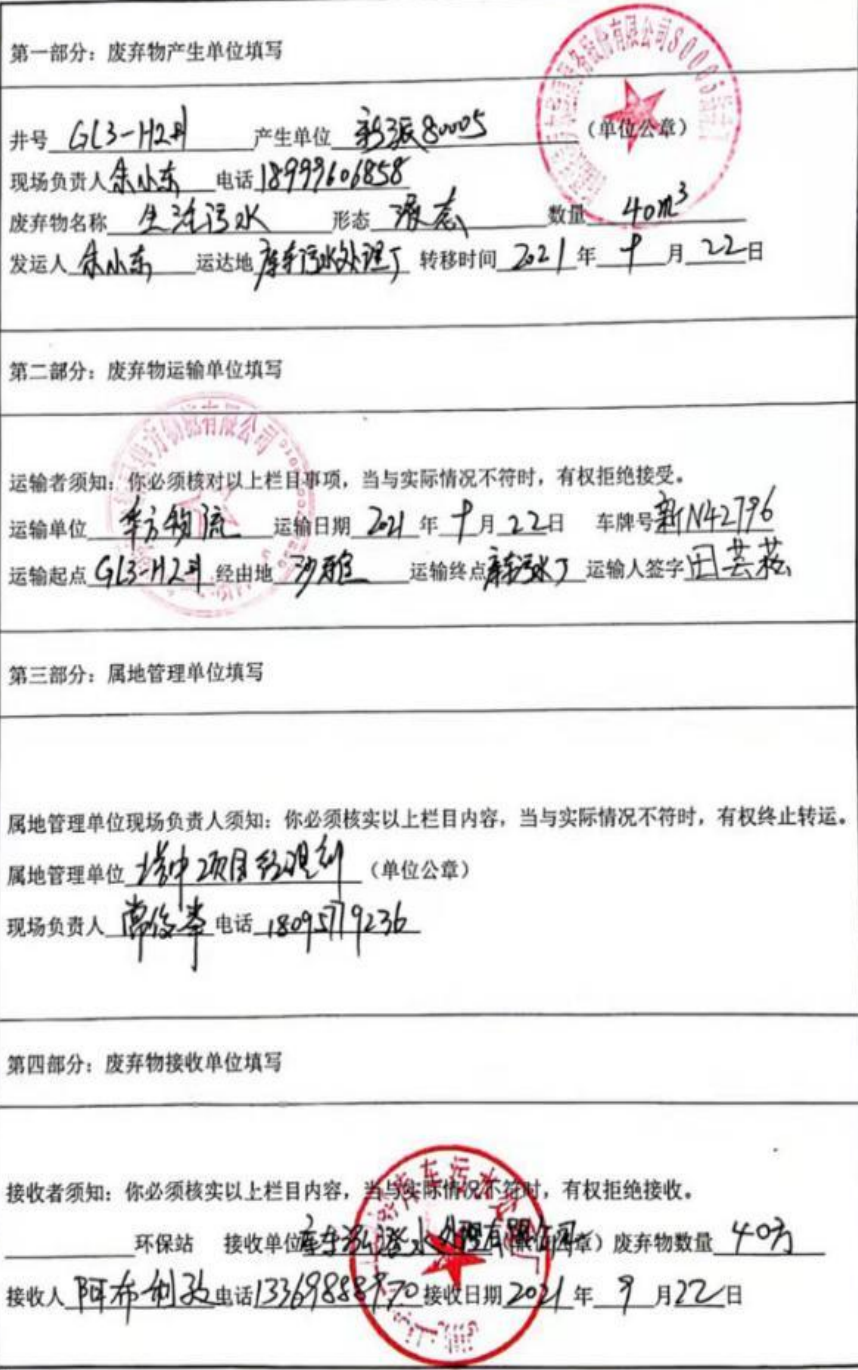 第一部分：废弃物产生单位填写
井号 GL3-H2井 产生单位 新派80005 （单位公章）
现场负责人 余小东 电话 18999606858
废弃物名称 生活污水 形态 液态 数量 40m³
发运人 余小东 运达地 库车污水处理厂 转移时间 2021 年 9 月 22 日
第二部分：废弃物运输单位填写
运输者须知：你必须核对以上栏目事项，当与实际情况不符时，有权拒绝接受。
运输单位 物流 运输日期 2021 年 9 月 22 日 车牌号 新N42796
运输起点 GL3-H2井 经由地 沙雅 运输终点 库车污水厂 运输人签字 田芸菘
第三部分：属地管理单位填写
属地管理单位现场负责人须知：你必须核实以上栏目内容，当与实际情况不符时，有权终止转运。
属地管理单位 塔中项目经理部 （单位公章）
现场负责人 常俊 电话 18095779236
第四部分：废弃物接收单位填写
接收者须知：你必须核实以上栏目内容，当与实际情况不符时，有权拒绝接收。
环保站 接收单位 库车泓澄水处理有限公司 章）废弃物数量 40方
接收人 阿布利孜 电话 13369888970 接收日期 2021 年 9 月 22 日